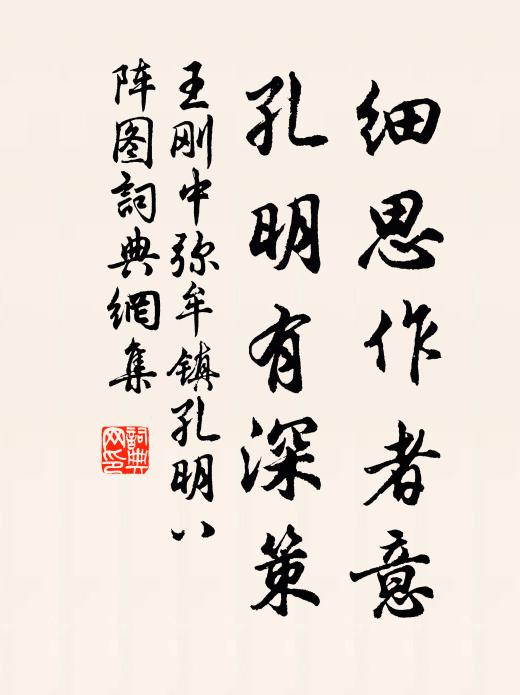 细思作者意
孔明有深策
王刚中弥牟镇孔明八
阵图詞典網集
詞典网印